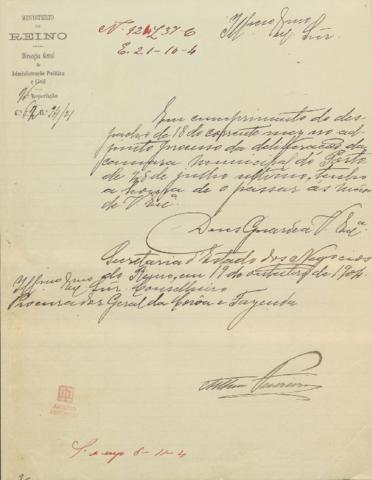 MINISTERIO
DO
REINO
Direcção Geral
de
Administração Politica
e Civil
2ª Repartição
Nº 12 L 37-C
E. 21-10-4
Illmo Exmo
Snr.
Em cumprimento do des-
pacho de 18 do corrente mez no ad-
junto processo da deliberação da
camara municipal do Porto
de 28 de julho ultimo, tenho
a honra de o passar ás mãos
de V. Exª.
Deus Guarde a V. Exª.
Secretaria d'Estado dos Negocios
do Reino, em 19 de outubro de 1904
Illmo Exmo Snr. Conselheiro
Procurador Geral da Corôa e Fazenda